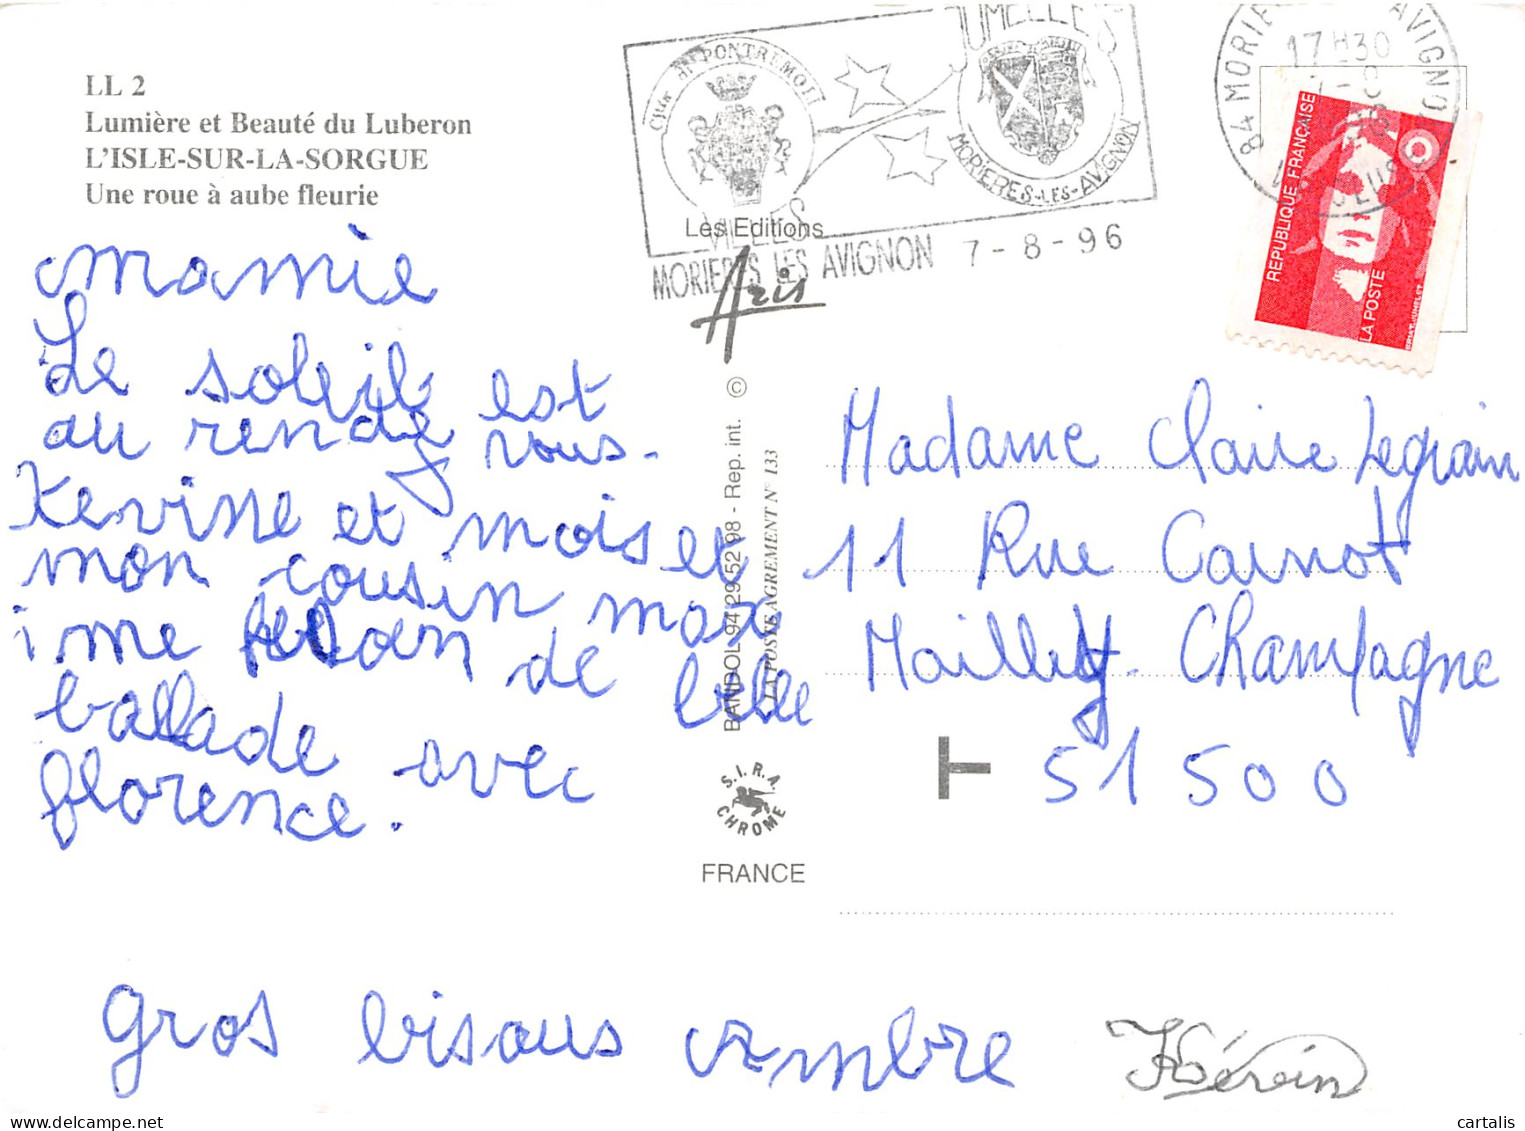 LL 2
Lumière et Beauté du Luberon
L'ISLE-SUR-LA-SORGUE
Une roue à aube fleurie
mamie
Le soleil est
au rendez vous.
Kevine et mois et
mon cousin max
ime de belle
ballade avec
florence.
gros bisous Ambre
Kévin
JUMELLES
PONTREMOLI
MORIERES-LES-AVIGNON
VILLES
MORIERES LES AVIGNON 7-8-96
Les Editions
Aris
BANDOL 94 29 52 98 - Rep. int. ©
LA POSTE AGREMENT N° 133
S.I.R.A.
CHROME
FRANCE
84 MORIE AVIGNON
17H30
VAUCLUSE
REPUBLIQUE FRANÇAISE
LA POSTE
Madame Claire Legrain
11 Rue Carnot
Mailly Champagne
51 500
cartalis